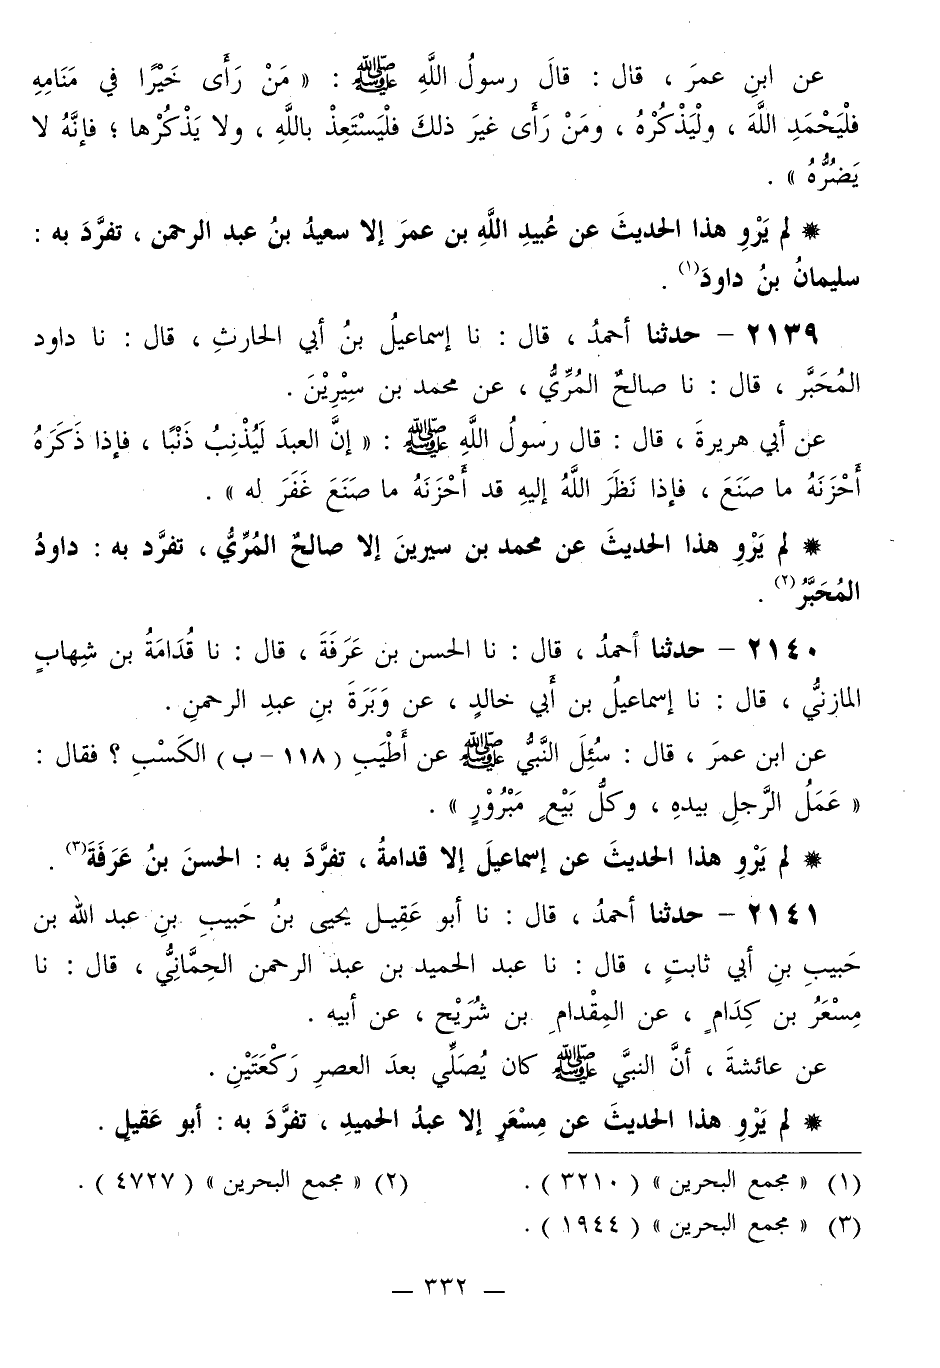 عن ابنِ عمرَ ، قال : قالَ رسولُ اللَّهِ ﷺ : « مَنْ رَأَى خَيْرًا في مَنَامِهِ
فلْيَحْمَدِ اللَّهَ ، ولْيَذْكُرْهُ ، ومَنْ رَأَى غيرَ ذلكَ فلْيَسْتَعِذْ باللَّهِ ، ولا يَذْكُرْها ؛ فإنَّهُ لا
يَضُرُّهُ » .
* لم يَرْوِ هذا الحديثَ عن عُبيدِ اللَّهِ بن عمرَ إلا سعيدُ بنُ عبد الرحمن ، تفرَّدَ به :
سليمانُ بنُ داودَ(١) .
٢١٣٩ - حدثنا أحمدُ ، قال : نا إسماعيلُ بنُ أبي الحارثِ ، قال : نا داود
المُحَبَّر ، قال : نا صالحٌ المُرِّيُّ ، عن محمد بن سِيْرِيْنَ .
عن أبي هريرةَ ، قال : قال رسولُ اللَّهِ ﷺ : « إنَّ العبدَ لَيُذْنِبُ ذَنْبًا ، فإذا ذَكَرَهُ
أَحْزَنَهُ ما صَنَعَ ، فإذا نَظَرَ اللَّهُ إليهِ قد أَحْزَنَهُ ما صَنَعَ غَفَرَ له » .
* لم يَرْوِ هذا الحديثَ عن محمد بن سيرينَ إلا صالحٌ المُرِّيُّ ، تفرَّد به : داودُ
المُحَبَّرُ(٢) .
٢١٤٠ - حدثنا أحمدُ ، قال : نا الحسن بن عَرَفَةَ ، قال : نا قُدَامَةُ بن شِهابٍ
المازنيُّ ، قال : نا إسماعيلُ بن أَبي خالدٍ ، عن وَبَرَةَ بنِ عبدِ الرحمنِ .
عن ابن عمرَ ، قال : سُئِلَ النَّبيُّ ﷺ عن أَطْيَبِ ( ١١٨ - ب ) الكَسْبِ ؟ فقال :
« عَمَلُ الرَّجلِ بيدهِ ، وكلُّ بَيْعٍ مَبْرُوْرٍ » .
* لم يَرْوِ هذا الحديثَ عن إسماعيلَ إلا قدامةُ ، تفرَّدَ به : الحسنَ بنُ عَرَفَةَ(٣) .
٢١٤١ - حدثنا أحمدُ ، قال : نا أبو عَقِيل يحيى بنُ حَبيبِ بنِ عبد الله بن
حَبيبِ بنِ أبي ثابتٍ ، قال : نا عبد الحميد بن عبد الرحمن الحِمَّانِيُّ ، قال : نا
مِسْعَرُ بن كِدَامٍ ، عن المِقْدامِ بن شُرَيْح ، عن أبيه .
عن عائشةَ ، أنَّ النبيَّ ﷺ كان يُصَلِّي بعدَ العصرِ رَكْعَتَيْنِ .
* لم يَرْوِ هذا الحديثَ عن مِسْعَرٍ إلا عبدُ الحميدِ ، تفرَّدَ به : أبو عَقيلٍ .
(١) « مجمع البحرين » ( ٣٢١٠ ) . (٢) « مجمع البحرين » ( ٤٧٢٧ ) .
(٣) « مجمع البحرين » ( ١٩٤٤ ) .
— ٣٣٢ —